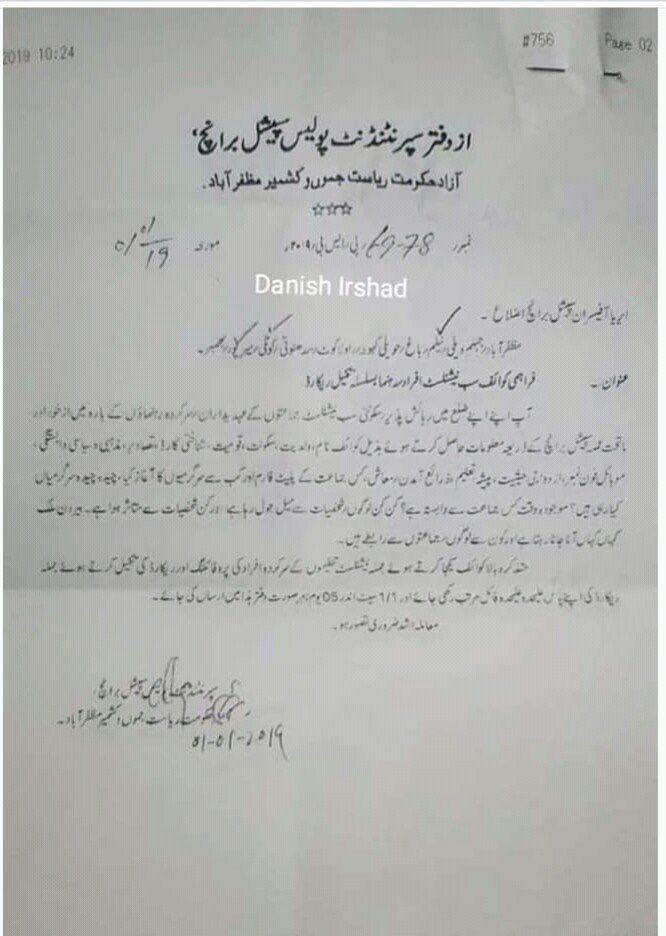 2019 10:24
#756
Page 02
از دفتر سپرنٹنڈنٹ پولیس سپیشل برانچ،
آزاد حکومت ریاست جموں و کشمیر مظفر آباد۔
نمبر 69-78 / پی / ایس بی / ۲۰۱۹ء مورخہ 01/01/19
Danish Irshad
ایریا آفیسران سپیشل برانچ اضلاع ۔
مظفر آباد / جہلم ویلی / نیلم / باغ / حویلی کہوٹہ / راولاکوٹ / سدھنوتی / کوٹلی / میرپور / بھمبر۔
عنوان ۔ فراہمی کوائف سب نیشنلسٹ افراد بسلسلہ تکمیل ریکارڈ
آپ اپنے اپنے ضلع میں رہائش پذیر / سکونتی سب نیشنلسٹ جماعتوں کے عہدیداران / سرکردہ رہنماؤں کے بارہ میں از خود اور
ماتحت عملہ سپیشل برانچ کے ذریعہ معلومات حاصل کرتے ہوئے بذیل کوائف نام، ولدیت، سکونت، قومیت، شناختی کارڈ، تصاویر، مذہبی و سیاسی وابستگی،
موبائل فون نمبر، ازدواجی حیثیت، پیشہ، تعلیم، ذرائع آمدن / معاش، کس جماعت کے پلیٹ فارم اور کب سے سرگرمیوں کا آغاز کیا، چیدہ چیدہ سرگرمیاں
کیا رہی ہیں؟ موجودہ وقت کس جماعت سے وابستہ ہے؟ کن کن لوگوں / شخصیات سے میل جول رہا ہے اور کن شخصیات سے متاثر ہوا ہے۔ بیرون ملک
کہاں کہاں آنا جانا رہتا ہے اور کون سے لوگوں / جماعتوں سے رابطے ہیں۔
متذکرہ بالا کوائف یکجا کرتے ہوئے جملہ نیشنلسٹ تنظیموں کے سرکردہ افراد کی پروفائلنگ اور ریکارڈ کی تکمیل کرتے ہوئے جملہ
ریکارڈ کی اپنے پاس علیحدہ علیحدہ فائل مرتب رکھی جائے اور 1/1 سیٹ اندر 05 یوم بہر صورت دفتر ہذا میں ارسال کی جائے۔
معاملہ اشد ضروری تصور ہو۔
سپرنٹنڈنٹ پولیس سپیشل برانچ،
آزاد حکومت ریاست جموں و کشمیر مظفر آباد۔
01-01-2019